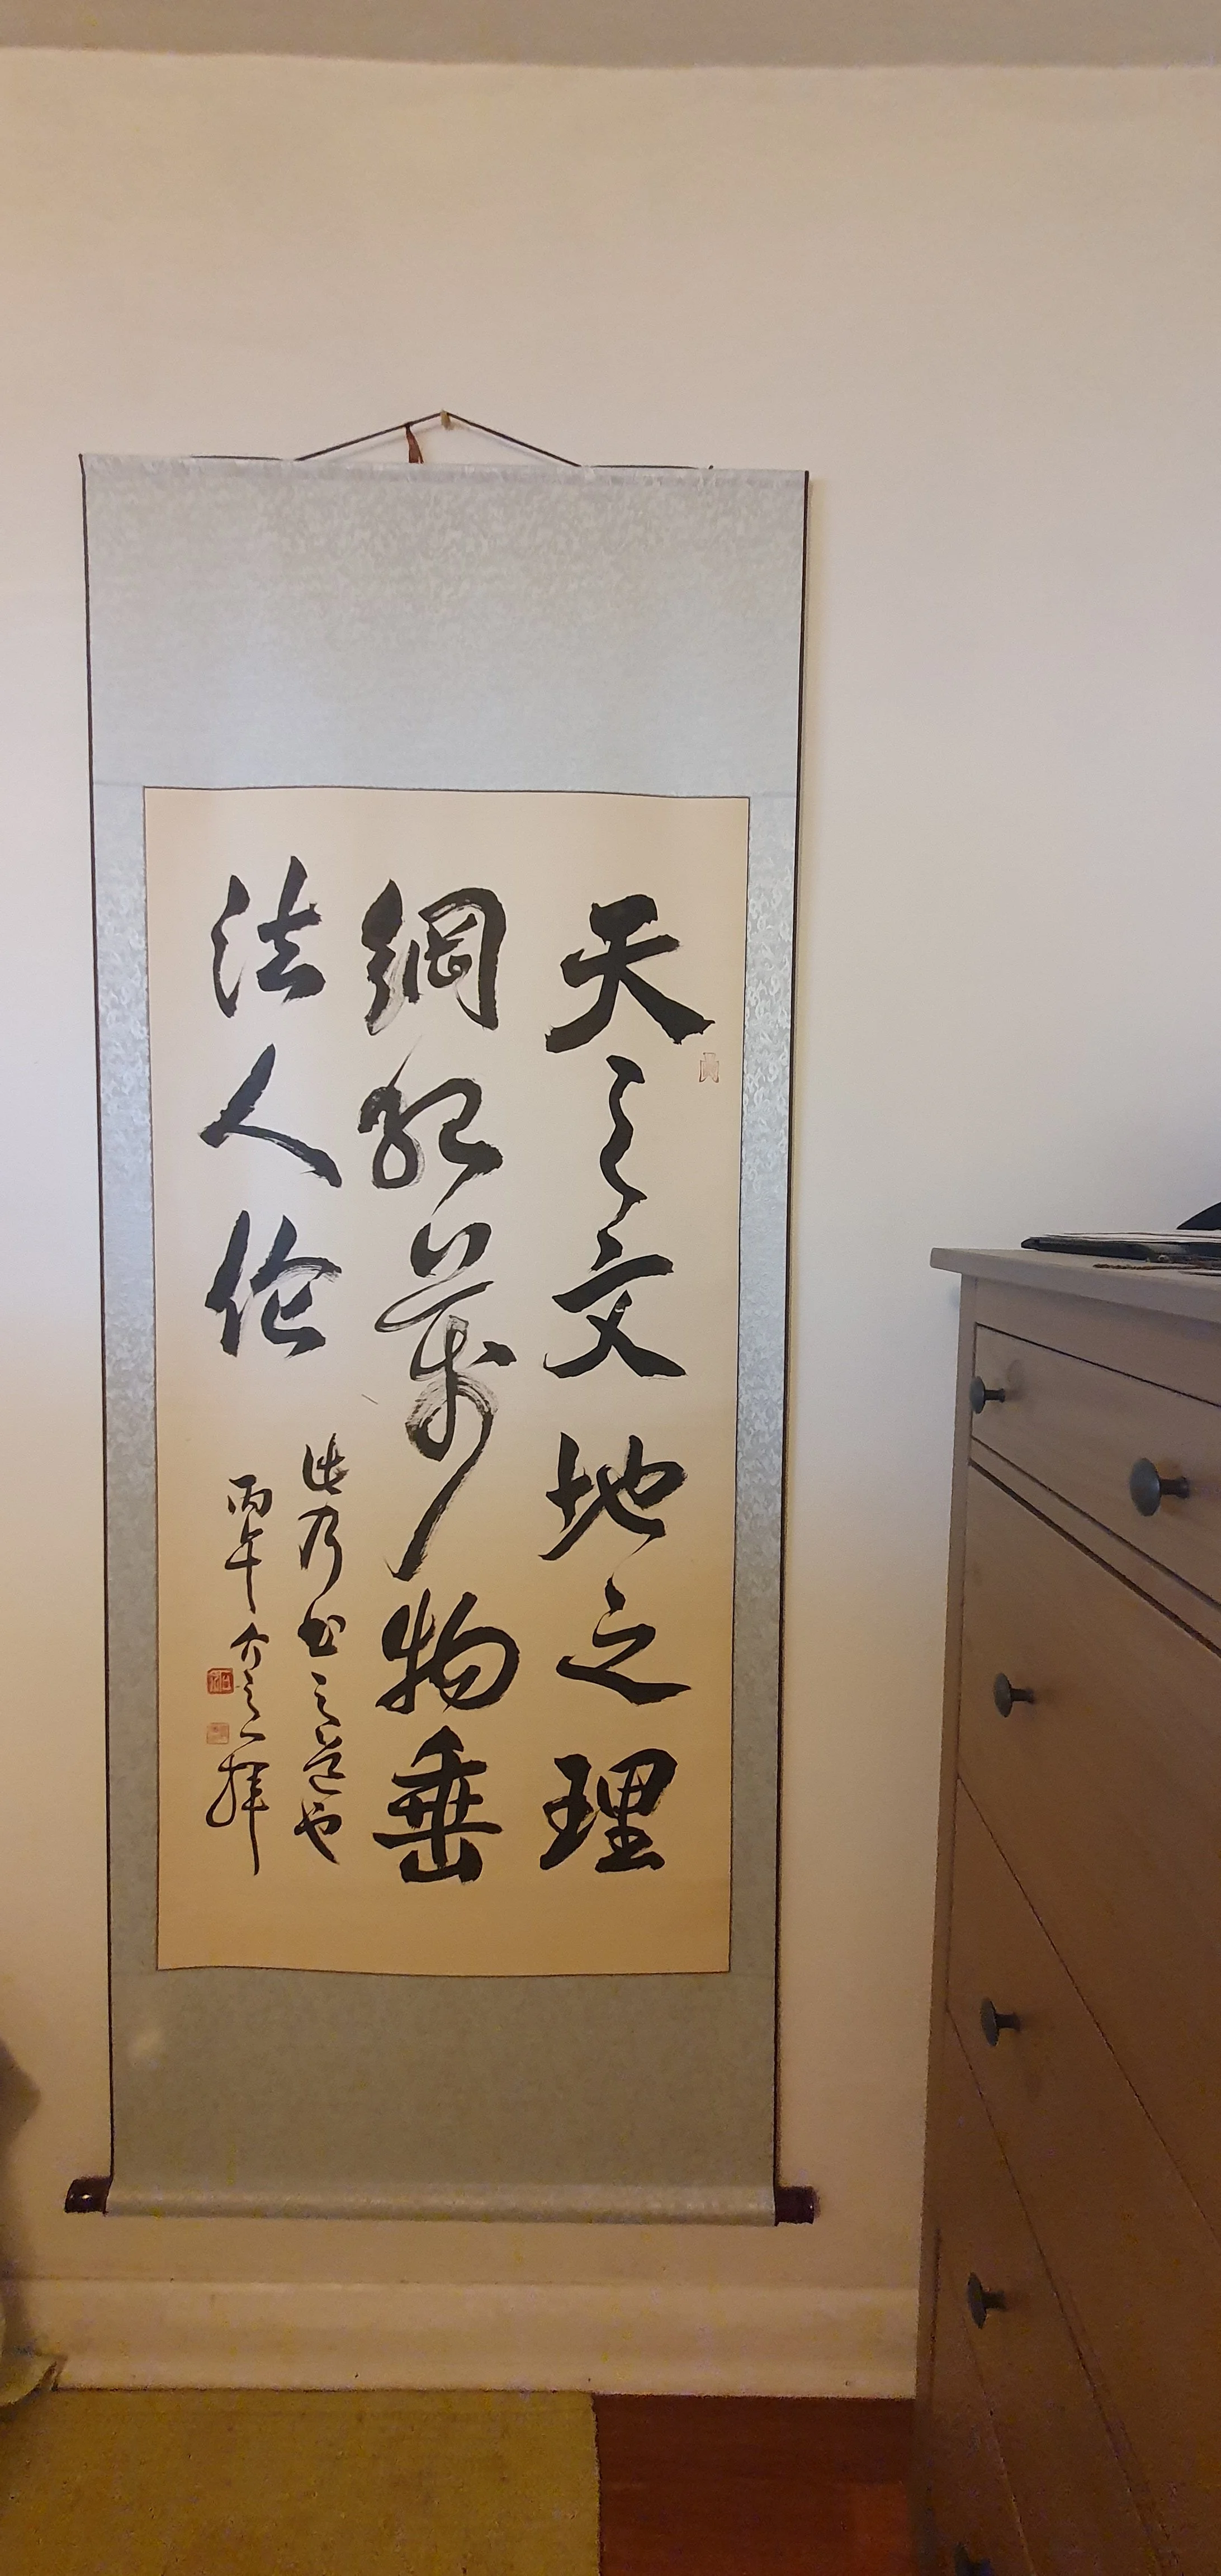 天之文地之理
綱紀萬物垂
法人倫
此乃書之道也
丙午介之拜